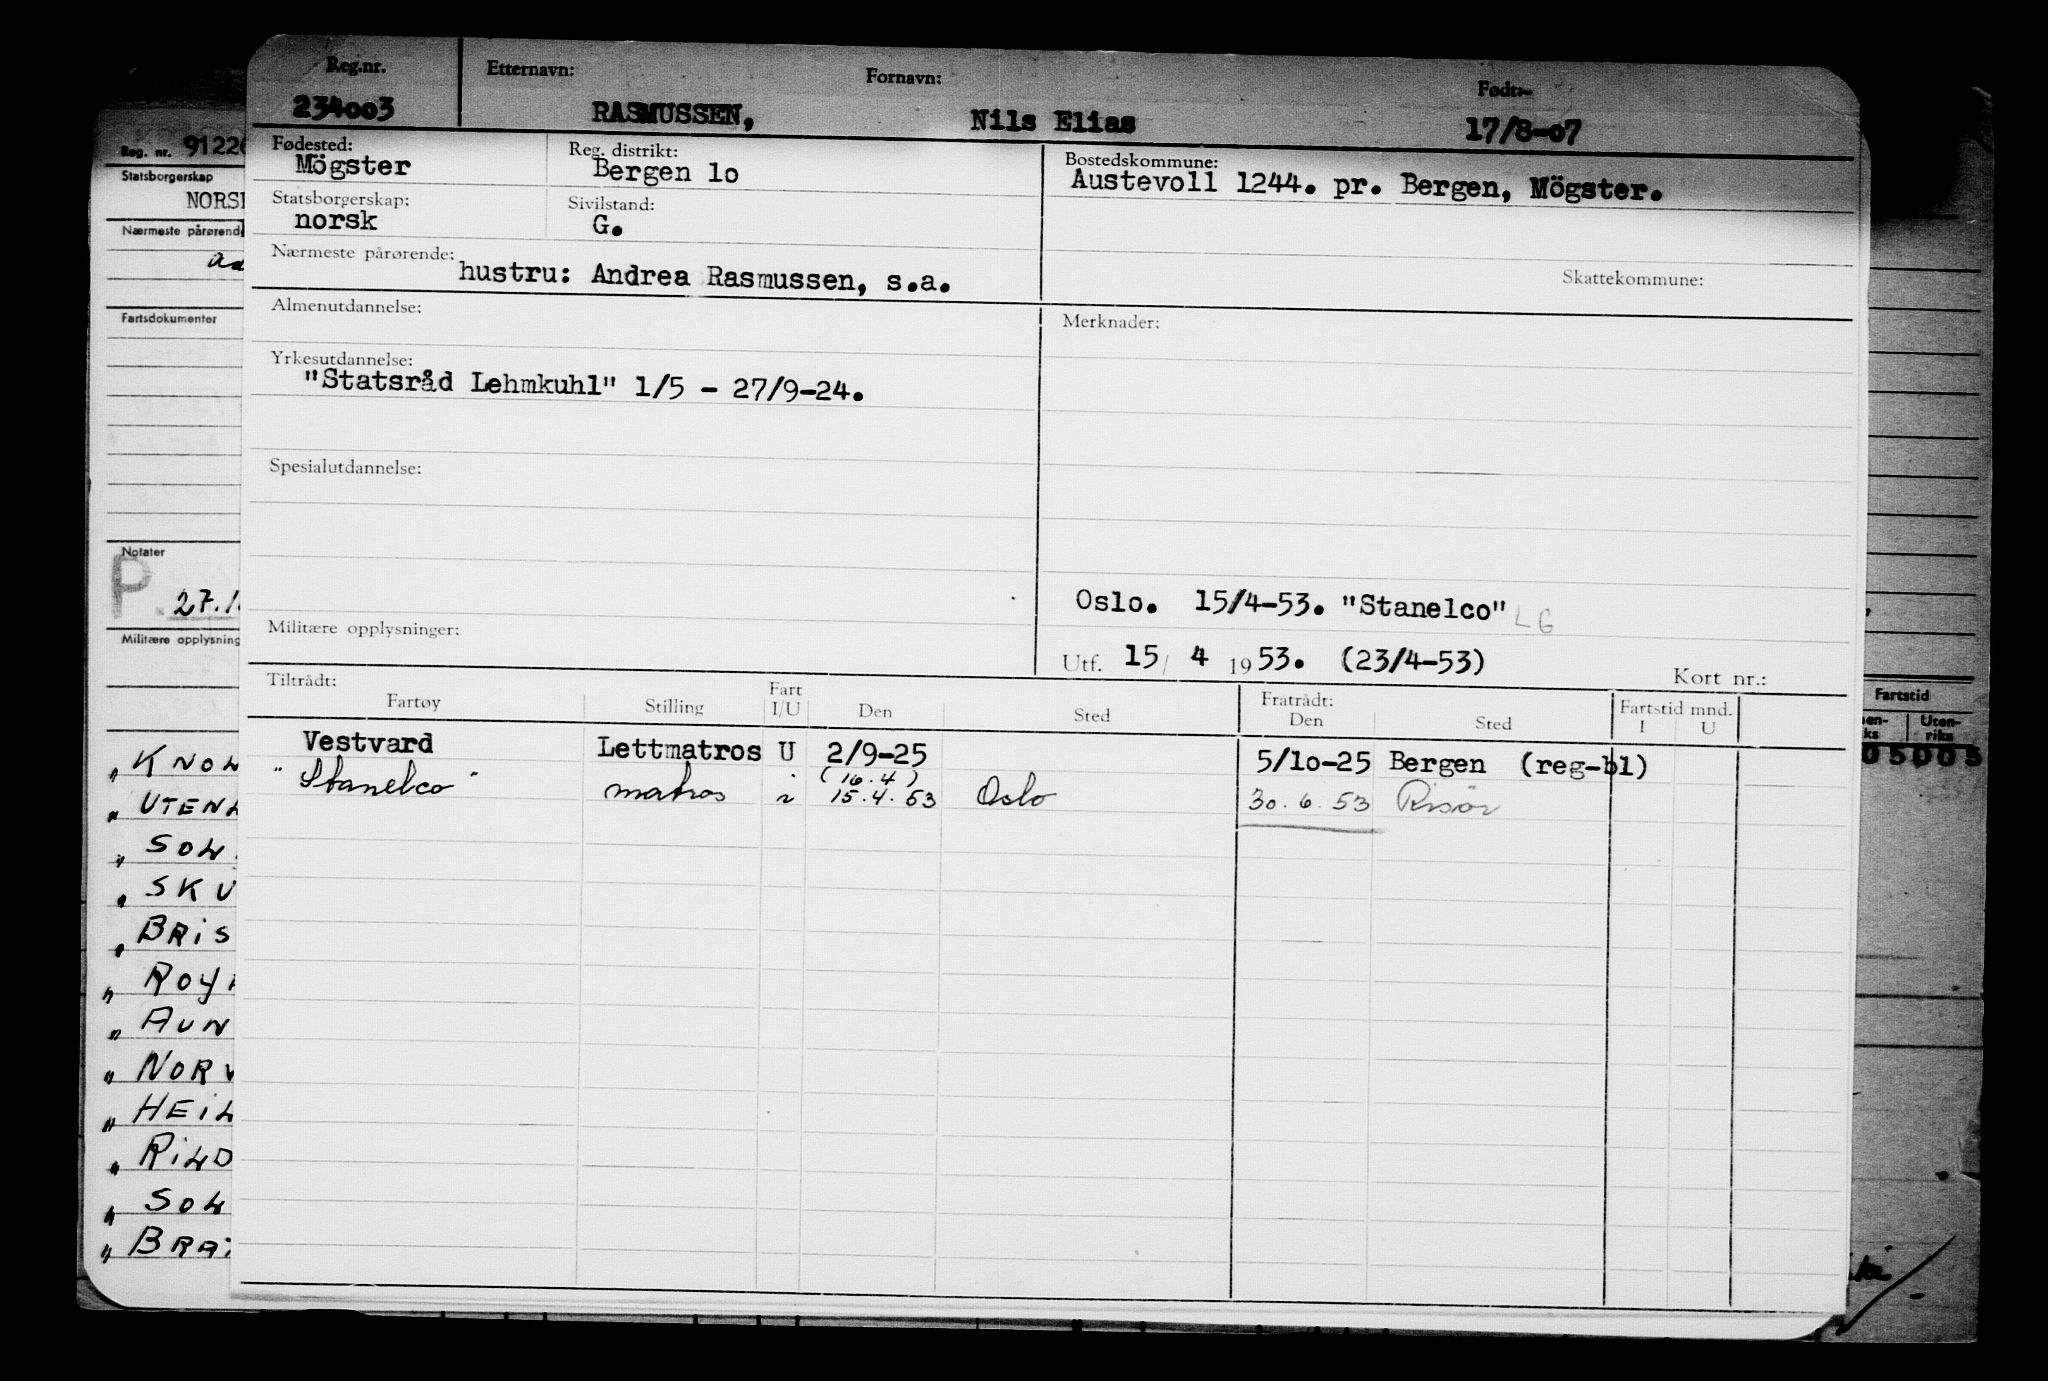 Reg.nr. Etternavn: Fornavn: Født:-
234003 RASMUSSEN, Nils Elias 17/8-07
Fødested: Reg. distrikt: Bostedskommune:
Mögster Bergen 1o Austevoll 1244. pr. Bergen, Mögster.
Statsborgerskap: Sivilstand:
norsk G.
Nærmeste pårørende: Skattekommune:
hustru: Andrea Rasmussen, s.a.
Almenutdannelse: Merknader:
Yrkesutdannelse:
"Statsråd Lehmkuhl" 1/5 - 27/9-24.
Spesialutdannelse:
Oslo. 15/4-53. "Stanelco" LG
Militære opplysninger:
Utf. 15/ 4 1953. (23/4-53) Kort nr.:
Tiltrådt: Fart Fratrådt: Fartstid mnd.
Fartøy Stilling I/U Den Sted Den Sted I U
Vestvard Lettmatros U 2/9-25 5/1o-25 Bergen (reg-bl)
(16.4)
"Stanelco" matros i 15.4.53 Oslo 30.6.53 Risör
Reg. nr. 9122
Statsborgerskap
NORS
Nærmeste pårørend
Fartsdokumenter
Notater
P. 27.1
Militære opplysning
" KNOL
" UTENL
" SOL
" SKU
" BRIS
" ROY
" AUN
" NORV
" HEIL
" RILD
" SOL
" BRA
Fartstid
en- Uten-
ks riks
05005